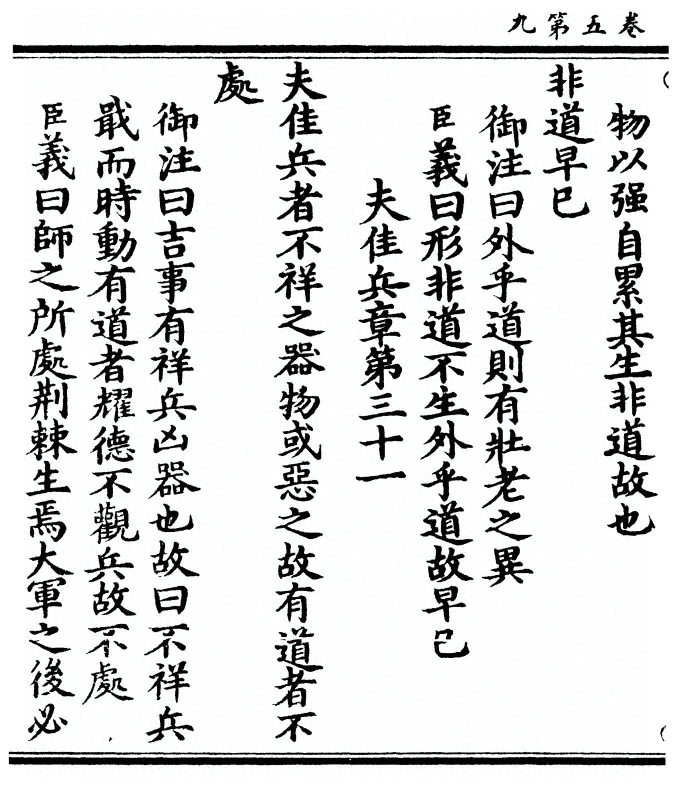 卷五第九
物以强自累其生非道故也
非道早巳
御注曰外乎道則有壯老之異
臣義曰形非道不生外乎道故早巳
夫佳兵章第三十一
夫佳兵者不祥之器物或惡之故有道者不
處
御注曰吉事有祥兵凶器也故曰不祥兵
戢而時動有道者耀德不觀兵故不處
臣義曰師之所處荆棘生焉大軍之後必